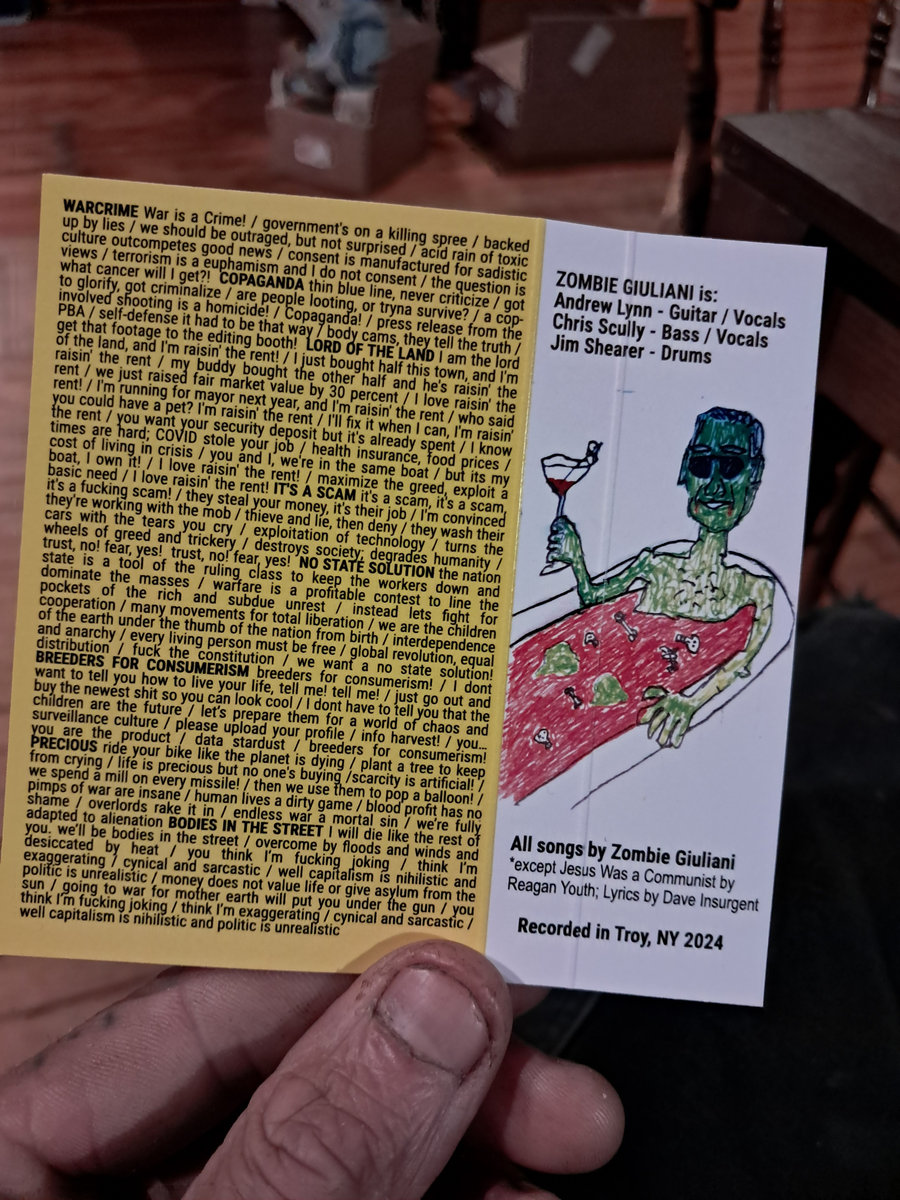 WARCRIME War is a Crime! / government's on a killing spree / backed
up by lies / we should be outraged, but not surprised / acid rain of toxic
culture outcompetes good news / consent is manufactured for sadistic
views / terrorism is a euphamism and I do not consent / the question is
what cancer will I get?! COPAGANDA thin blue line, never criticize / got
to glorify, got criminalize / are people looting, or tryna survive? / a cop-
involved shooting is a homicide! / Copaganda! / press release from the
PBA / self-defense it had to be that way / body cams, they tell the truth /
get that footage to the editing booth! LORD OF THE LAND I am the lord
of the land, and I'm raisin' the rent! / I just bought half this town, and I'm
raisin' the rent / my buddy bought the other half and he's raisin' the
rent / we just raised fair market value by 30 percent / I love raisin' the
rent! / I'm running for mayor next year, and I'm raisin' the rent / who said
you could have a pet? I'm raisin' the rent / I'll fix it when I can, I'm raisin'
the rent / you want your security deposit but it's already spent / I know
times are hard; COVID stole your job / health insurance, food prices /
cost of living in crisis / you and I, we're in the same boat / but its my
boat, I own it! / I love raisin' the rent! / maximize the greed, exploit a
basic need / I love raisin' the rent! IT'S A SCAM it's a scam, it's a scam,
it's a fucking scam! / they steal your money, it's their job / I'm convinced
they're working with the mob / thieve and lie, then deny / they wash their
cars with the tears you cry / exploitation of technology / turns the
wheels of greed and trickery / destroys society; degrades humanity /
trust, no! fear, yes! trust, no! fear, yes! NO STATE SOLUTION the nation
state is a tool of the ruling class to keep the workers down and
dominate the masses / warfare is a profitable contest to line the
pockets of the rich and subdue unrest / instead lets fight for
cooperation / many movements for total liberation / we are the children
of the earth under the thumb of the nation from birth / interdependence
and anarchy / every living person must be free / global revolution, equal
distribution / fuck the constitution / we want a no state solution!
BREEDERS FOR CONSUMERISM breeders for consumerism! / I dont
want to tell you how to live your life, tell me! tell me! / just go out and
buy the newest shit so you can look cool / I dont have to tell you that the
children are the future / let's prepare them for a world of chaos and
surveillance culture / please upload your profile / info harvest! / you...
you are the product / data stardust / breeders for consumerism!
PRECIOUS ride your bike like the planet is dying / plant a tree to keep
from crying / life is precious but no one's buying /scarcity is artificial! /
we spend a mill on every missile! / then we use them to pop a balloon! /
pimps of war are insane / human lives a dirty game / blood profit has no
shame / overlords rake it in / endless war a mortal sin / we're fully
adapted to alienation BODIES IN THE STREET I will die like the rest of
you. we'll be bodies in the street / overcome by floods and winds and
desiccated by heat / you think I'm fucking joking / think I'm
exaggerating / cynical and sarcastic / well capitalism is nihilistic and
politic is unrealistic / money does not value life or give asylum from the
sun / going to war for mother earth will put you under the gun / you
think I'm fucking joking / think I'm exaggerating / cynical and sarcastic /
well capitalism is nihilistic and politic is unrealistic
ZOMBIE GIULIANI is:
Andrew Lynn - Guitar / Vocals
Chris Scully - Bass / Vocals
Jim Shearer - Drums
All songs by Zombie Giuliani
*except Jesus Was a Communist by
Reagan Youth; Lyrics by Dave Insurgent
Recorded in Troy, NY 2024